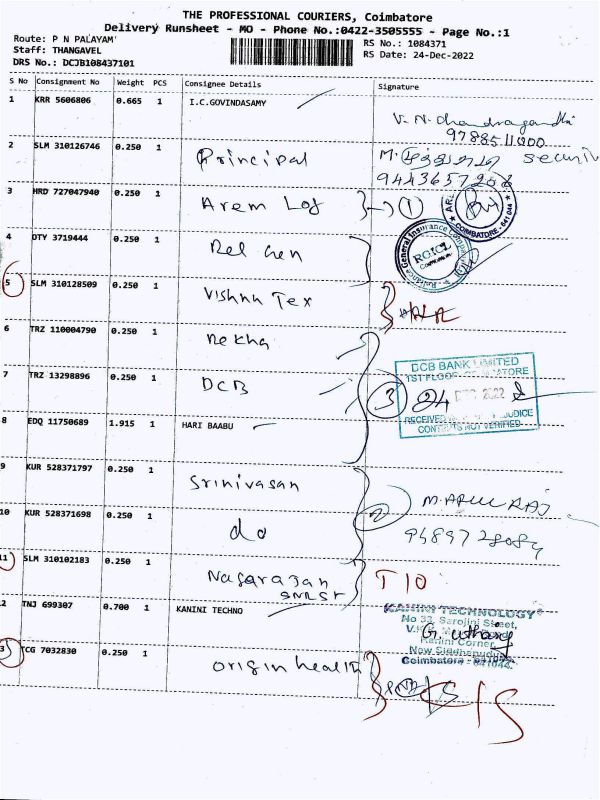 THE PROFESSIONAL COURIERS, Coimbatore
Delivery Runsheet - MO - Phone No.:0422-3505555 - Page No.:1
Route: P N PALAYAM
RS No.: 1084371
Staff: THANGAVEL
RS Date: 24-Dec-2022
DRS No.: DCJB108437101
S No Consignment No Weight PCS Consignee Details Signature
1 KRR 5606806 0.665 1 I.C.GOVINDASAMY
V. N. chandragandhi
9788511000
2 SLM 310126746 0.250 1 Principal
9443657208
3 HRD 727047940 0.250 1 Arem Log 1
COIMBATORE - 641 044
4 DTY 3719444 0.250 1 Rel Gen
Reliance General Insurance Company
RGICL
5 SLM 310128509 0.250 1 Vishnu Tex
6 TRZ 110004790 0.250 1 Rekha
DCB BANK LIMITED
1ST FLOOR, COIMBATORE
7 TRZ 13298896 0.250 1 DCB 3
24 DEC 2022
RECEIVED WITHOUT PREJUDICE
CONTENTS NOT VERIFIED
8 EDQ 11750689 1.915 1 HARI BAABU
9 KUR 528371797 0.250 1 Srinivasan
2 M. ARUL RAJ
10 KUR 528371698 0.250 1 do
9489728084
11 SLM 310102183 0.250 1 Nagarajan
T10
12 TNJ 699307 0.700 1 KANINI TECHNO
KANINI TECHNOLOGY
No 33, Sarojini Street,
Kanini Corner,
New Siddhapudur,
Coimbatore - 641044.
13 TCG 7032830 0.250 1 Origin health